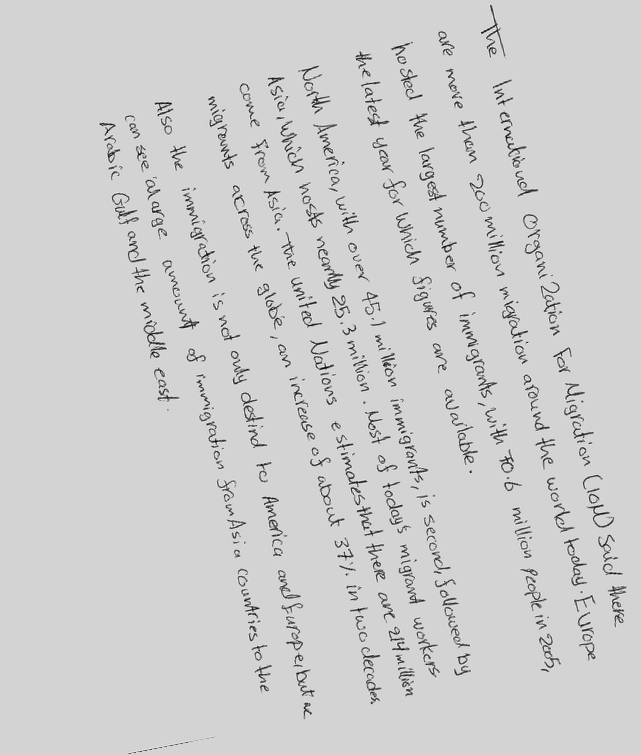 The International Organization For Migration (IOM) Said there
are more than 200 million migration around the world today. Europe
hosted the largest number of immigrants, with 70.6 million people in 2005,
the latest year for which figures are available.
North America, with over 45.1 million immigrants, is second, followed by
Asia, which hosts nearly 25.3 million. Most of today's migrant workers
come from Asia. The united Nations estimates that there are 214 million
migrants across the globe, an increase of about 37% in two decades
Also the immigration is not only destind to America and Europe, but we
can see alarge amount of immigration from Asia countries to the
Arabic Gulf and the middle east.